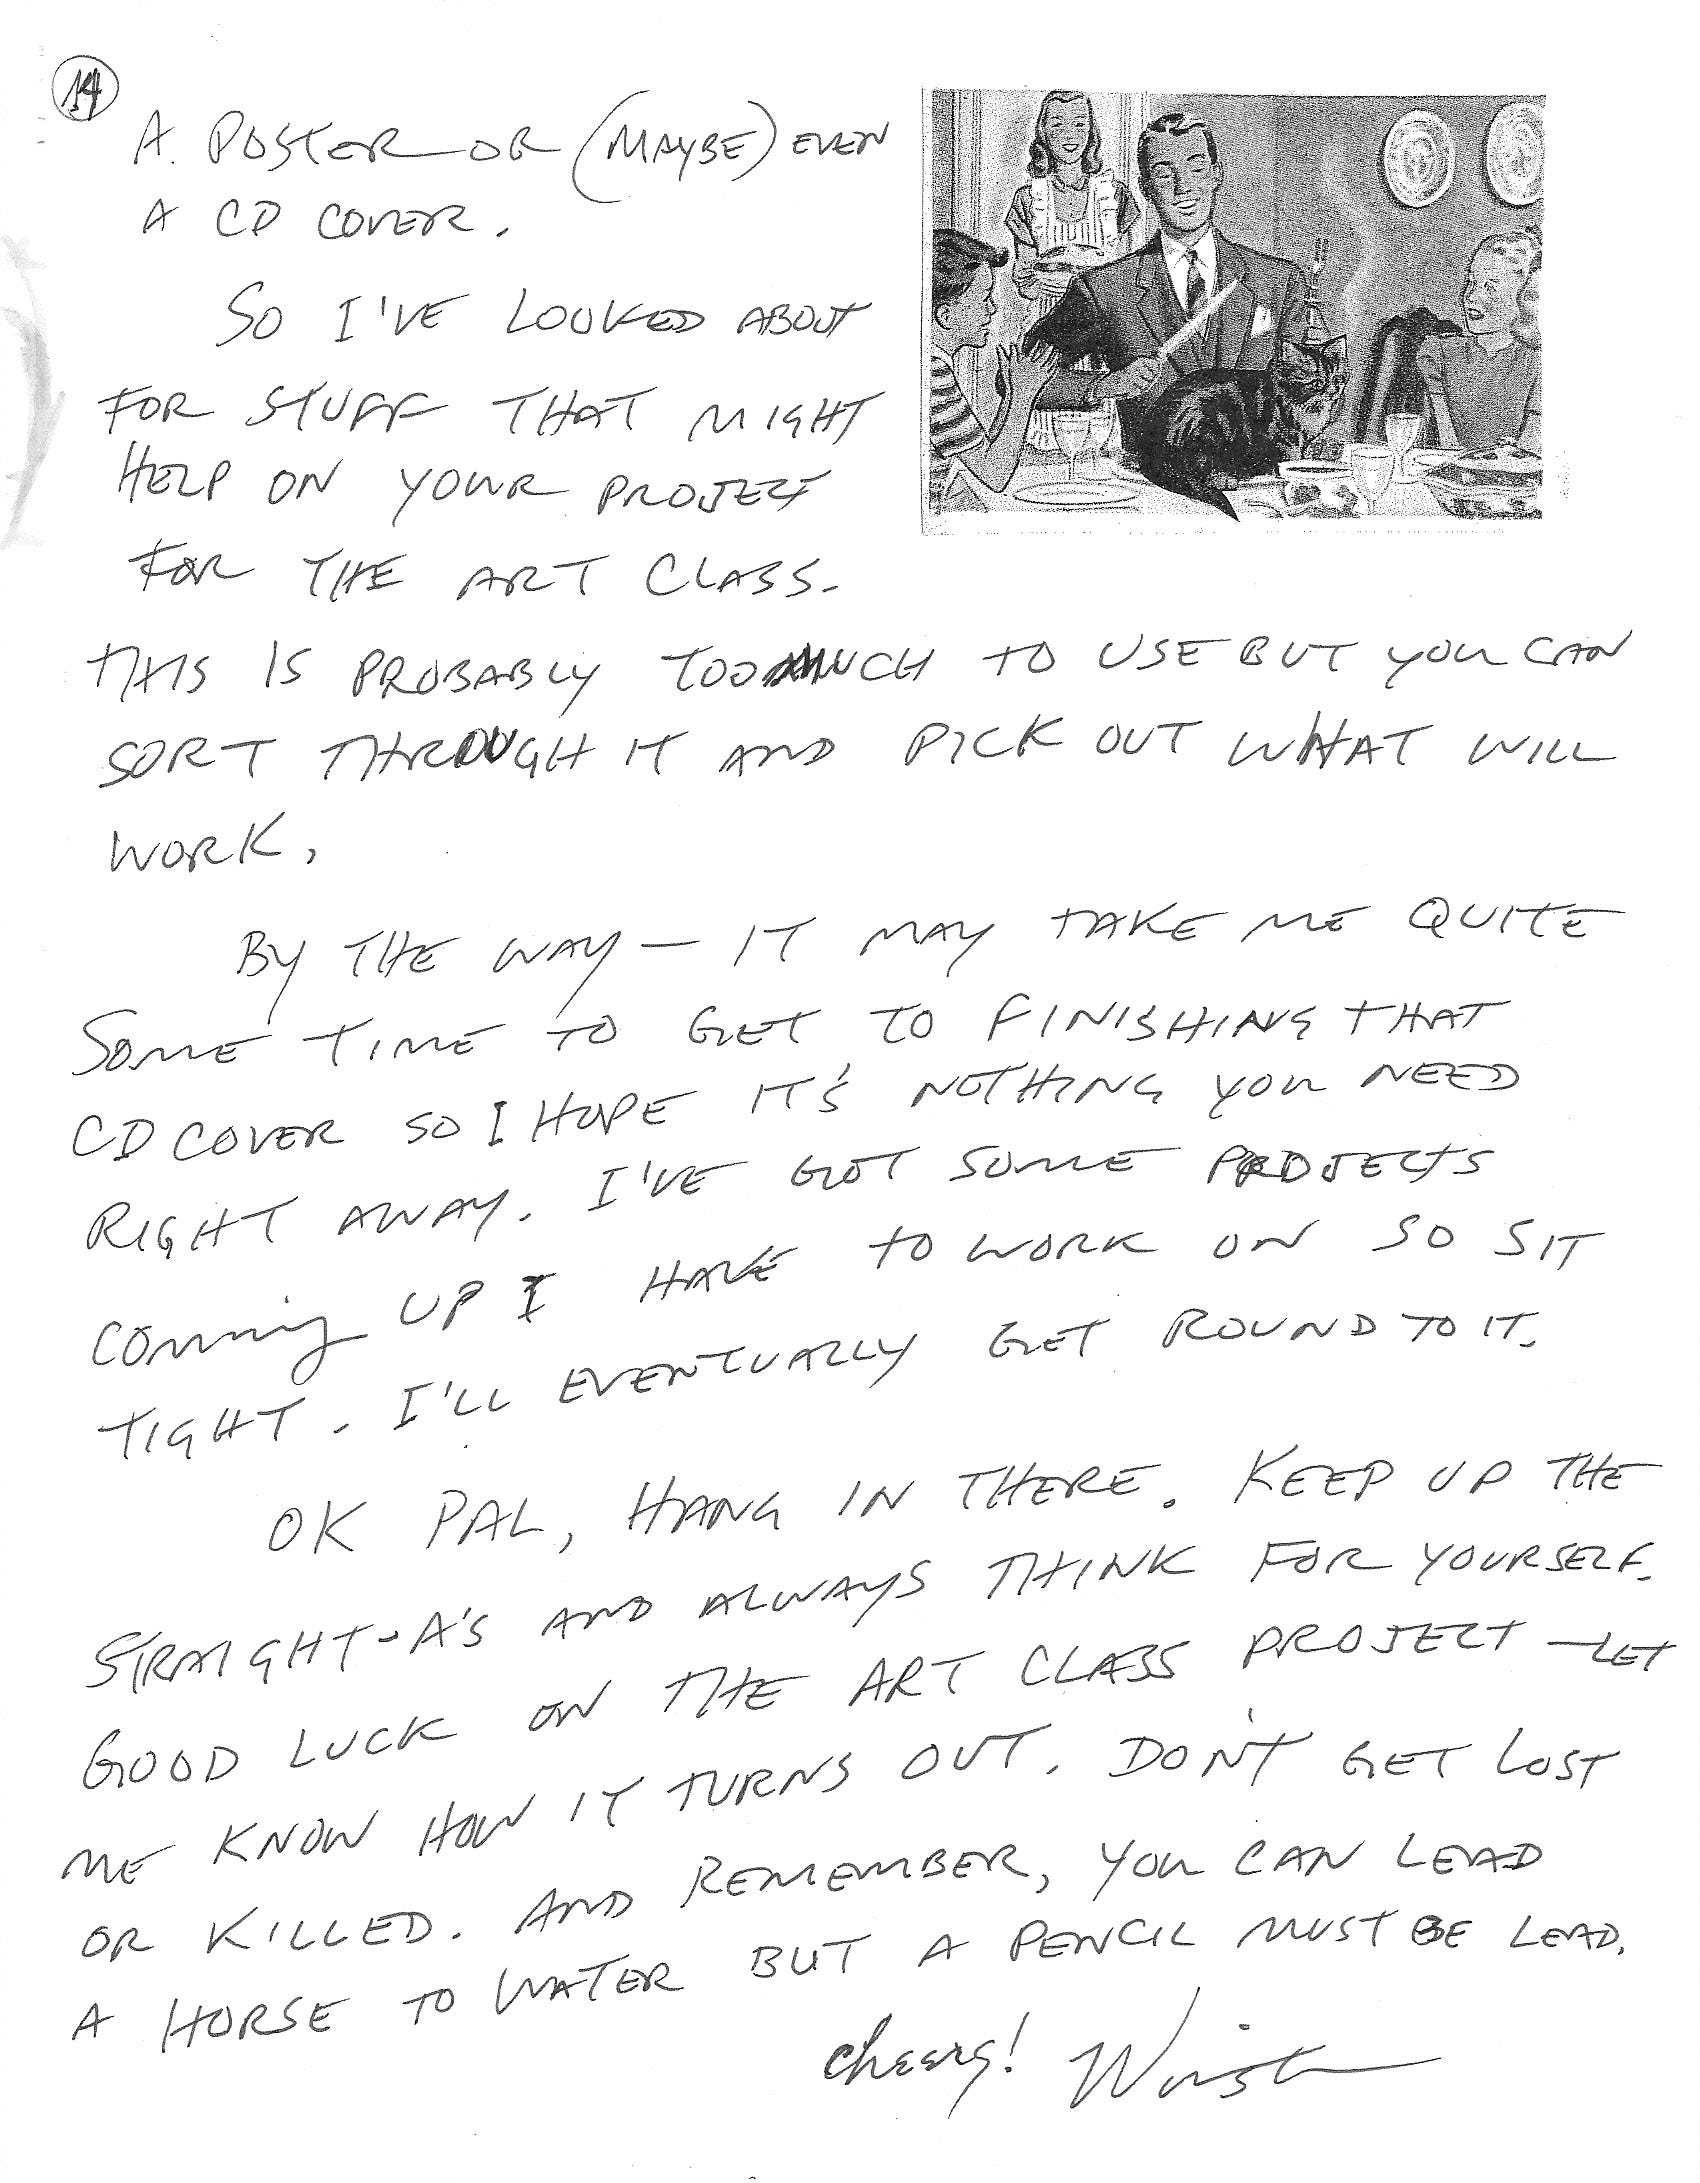 14
A POSTER OR (MAYBE) EVEN
A CD COVER.
SO I'VE LOOKED ABOUT
FOR STUFF THAT MIGHT
HELP ON YOUR PROJECT
FOR THE ART CLASS.
THIS IS PROBABLY TOO MUCH TO USE BUT YOU CAN
SORT THROUGH IT AND PICK OUT WHAT WILL
WORK.
BY THE WAY — IT MAY TAKE ME QUITE
SOME TIME TO GET TO FINISHING THAT
CD COVER SO I HOPE IT'S NOTHING YOU NEED
RIGHT AWAY. I'VE GOT SOME PROJECTS
COMING UP I HAVE TO WORK ON SO SIT
TIGHT. I'LL EVENTUALLY GET ROUND TO IT.
OK PAL, HANG IN THERE. KEEP UP THE
STRAIGHT-A'S AND ALWAYS THINK FOR YOURSELF.
GOOD LUCK ON THE ART CLASS PROJECT — LET
ME KNOW HOW IT TURNS OUT. DON'T GET LOST
OR KILLED. AND REMEMBER, YOU CAN LEAD
A HORSE TO WATER BUT A PENCIL MUST BE LEAD.
Cheers! Winston